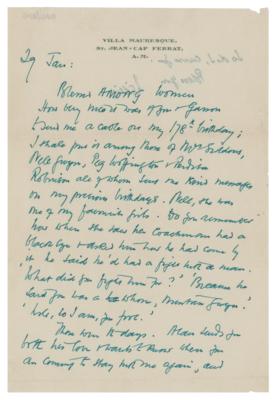 VILLA MAURESQUE,
ST. JEAN-CAP FERRAT,
A.M.
29 Jan:
Blessed Among Women
How very nice it was of you & Garson
to send me a cable on my 178th birthday;
I shall put it among those of Mrs Siddons,
Nell Gwyn, Peg Woffington & Perdita
Robinson all of whom sent me kind messages
on my previous birthdays. Nell, she was
one of my favourite girls. Do you remember
how when she saw her Coachman had a
black eye & asked him how he had come by
it he said he'd had a fight with a man.
'What did you fight him for?' 'Because he
said you was a whore, Mistress Gwyn.'
'Well, so I am, you fool.'
Those were the days. Alan sends you
both his love & wants to know when you
are coming to stay with me again, and